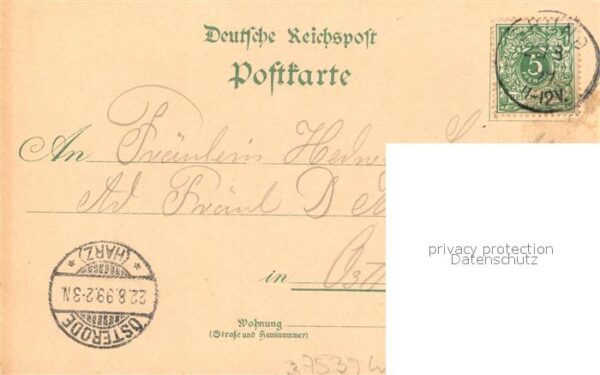 Deutsche Reichspost
Postkarte
5
11-12V.
An Fräulein Hedwi
Ad Fräul D
privacy protection
Datenschutz
in Ost
Wohnung
(Straße und Hausnummer)
* (HARZ) *
22.8.99.2-3N.
OSTERODE
37539